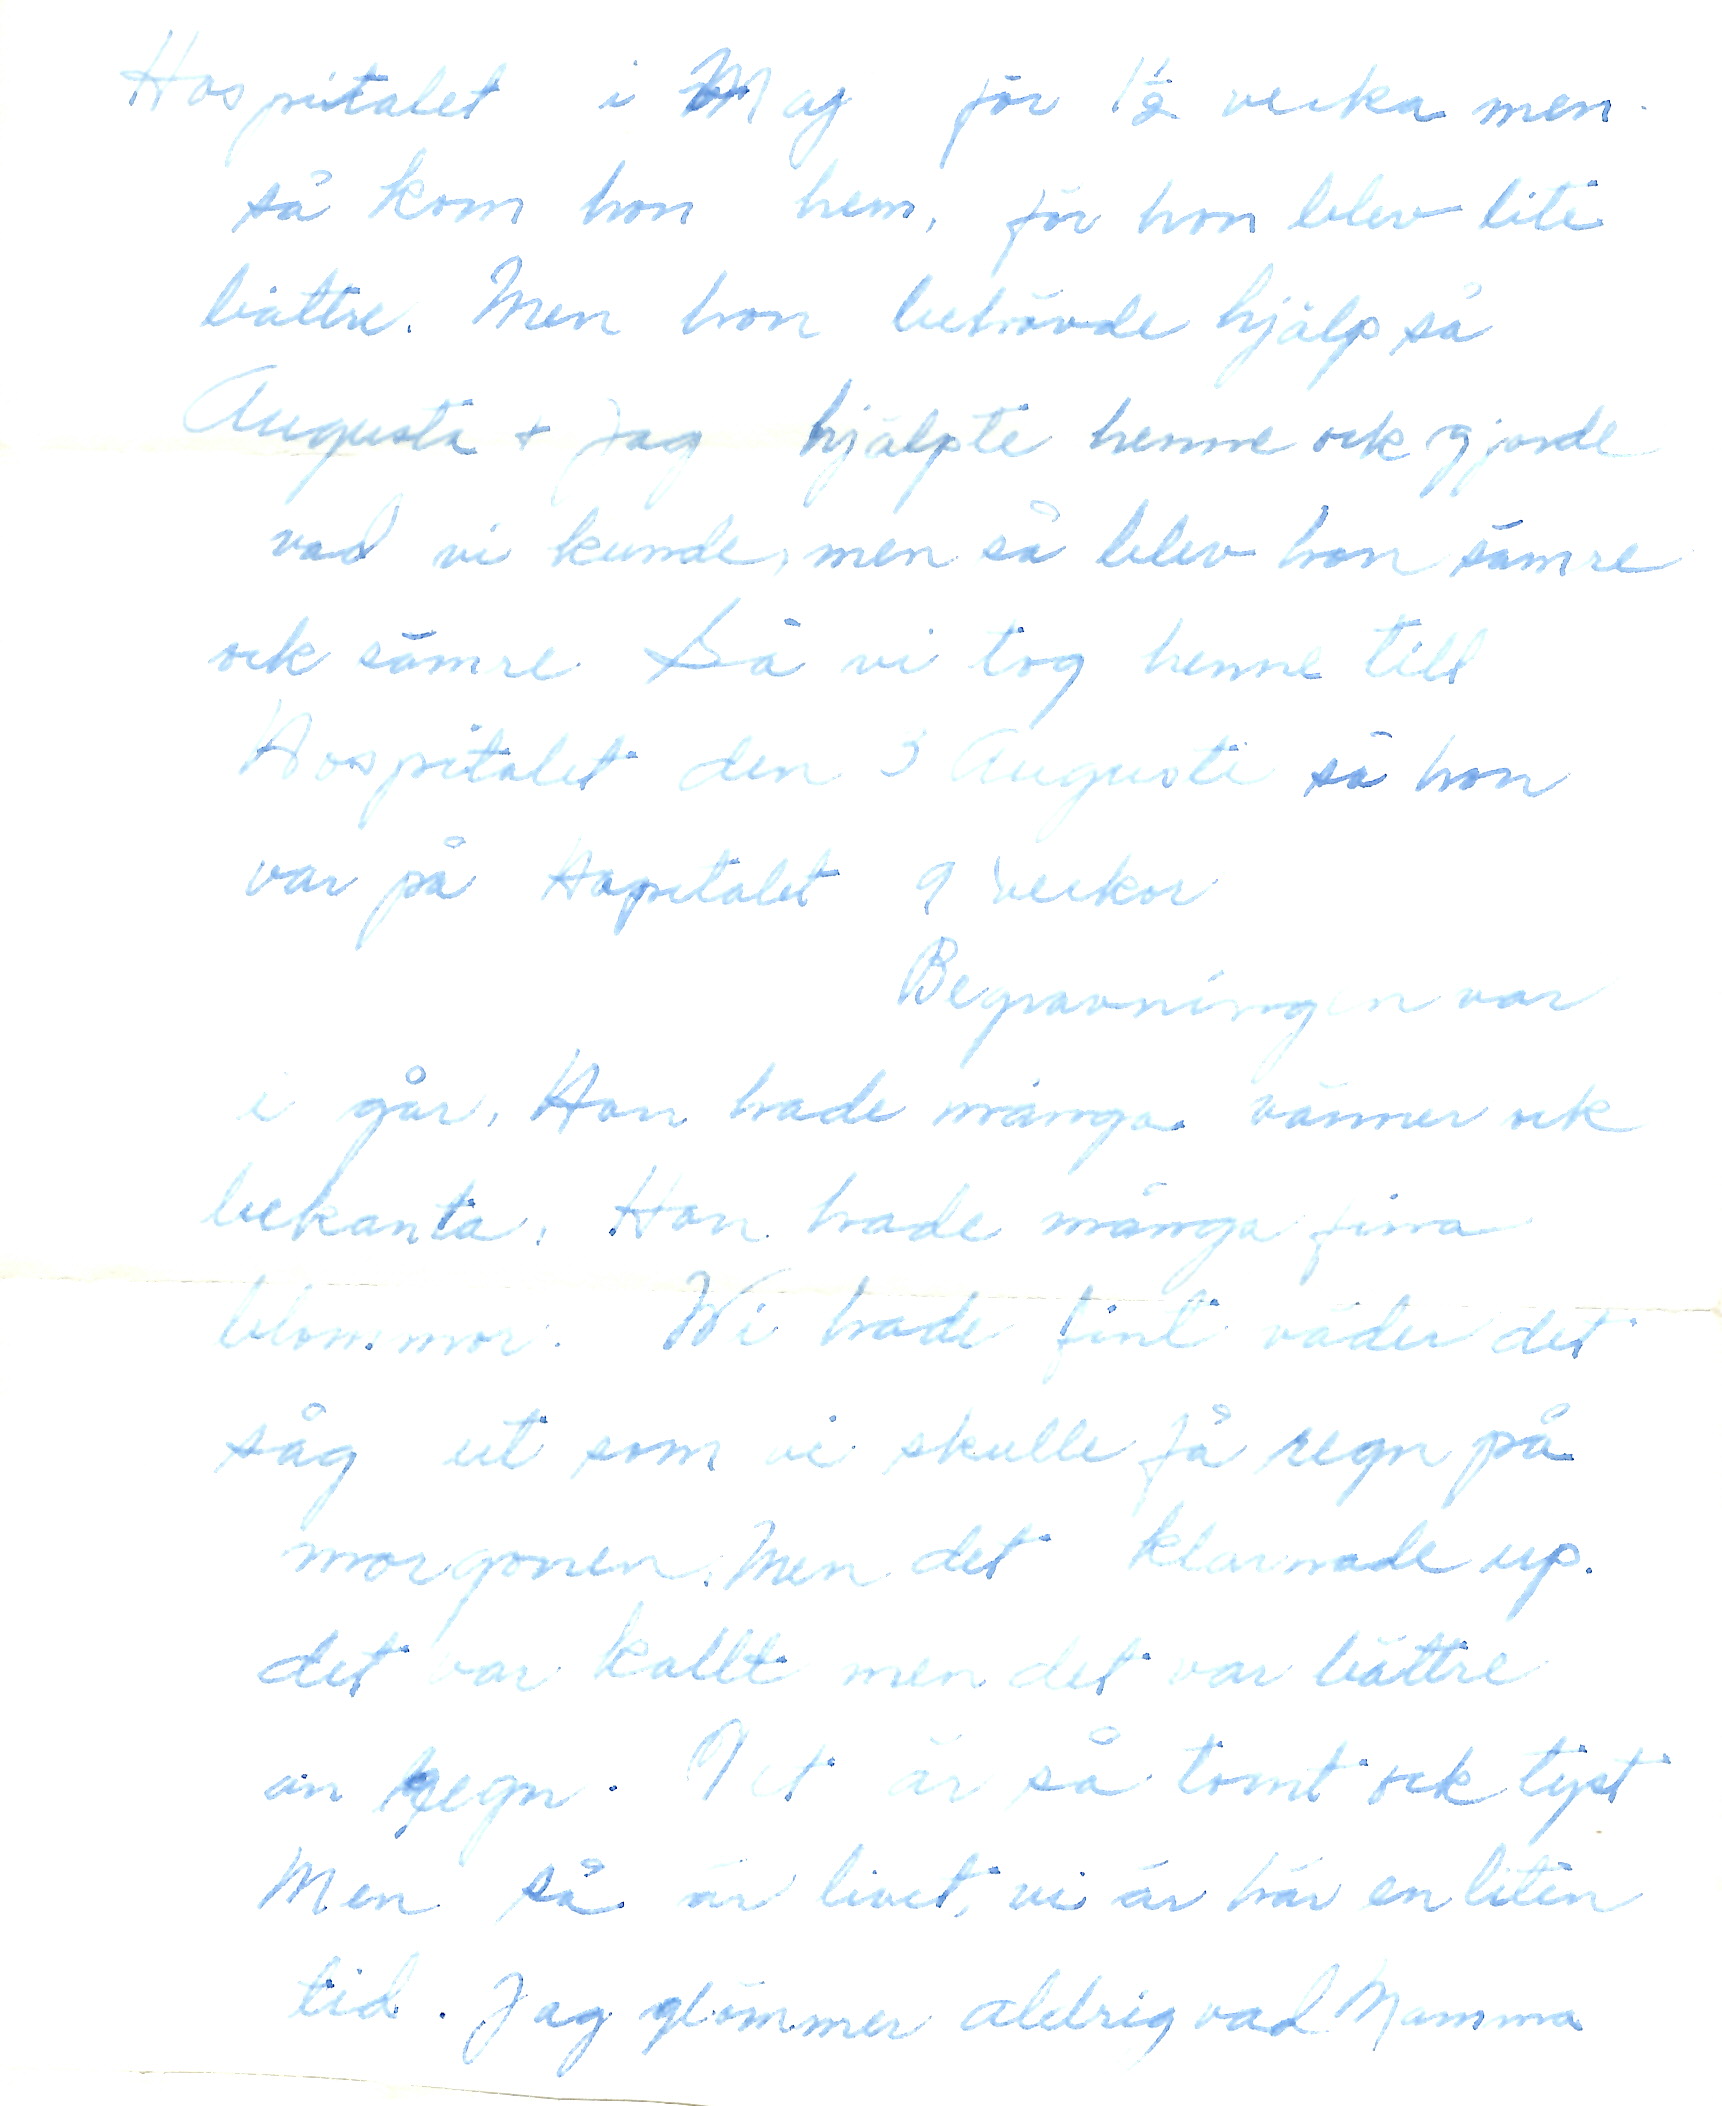 Hospitalet i Maj för 1½ vecka men
så kom hon hem, för hon blev lite
bättre. Men hon behövde hjälp så
Augusta + Jag hjälpte henne ock gjorde
vad vi kunde, men så blev hon sämre
ock sämre Så vi tog henne till
Hospitalet den 3 Augusti så hon
var på Hospitalet 9 veckor
Begravningen var
i går, Hon hade många vänner ock
bekanta. Hon hade många fina
blommor. Wi hade fint väder det
såg ut som vi skulle få regn på
morgonen. Men det klarnade up.
det var kallt men det var bättre
än regn. Det är så tomt ock tyst
Men så är livet, vi är här en liten
tid. Jag glömmer aldrig vad Mamma